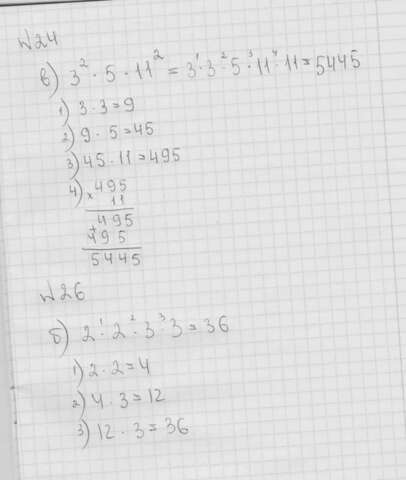 №24
в) 3² · 5 · 11² = 3 ·¹ 3 ·² 5 ·³ 11 ·⁴ 11 = 5445
1) 3 · 3 = 9
2) 9 · 5 = 45
3) 45 · 11 = 495
4) × 495
11
495
+ 495
5445
№26
б) 2 ·¹ 2 ·² 3 ·³ 3 = 36
1) 2 · 2 = 4
2) 4 · 3 = 12
3) 12 · 3 = 36